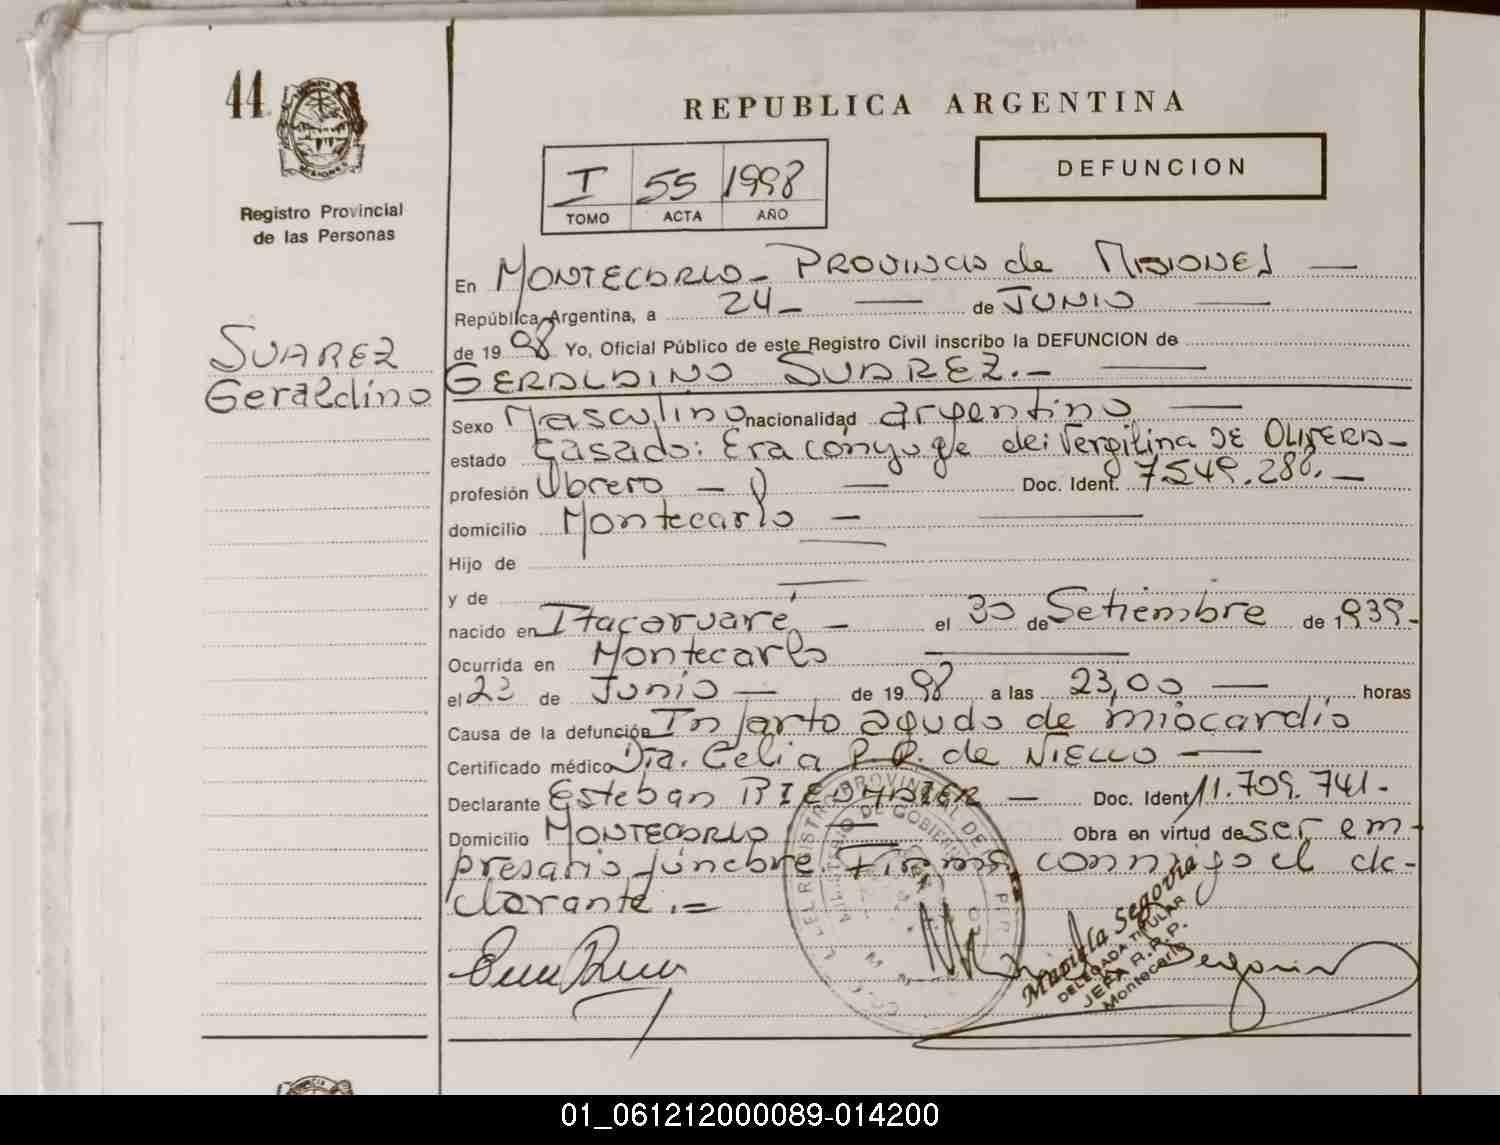 44
Registro Provincial
de las Personas
SUAREZ
Geraldino
REPUBLICA ARGENTINA
I 55 1998
TOMO ACTA AÑO
DEFUNCION
En MONTECARLO - PROVINCIA de MISIONES —
República Argentina, a 24 - — de JUNIO —
de 19 98 Yo, Oficial Público de este Registro Civil inscribo la DEFUNCION de
GERALDINO SUAREZ. - —
Sexo Masculino nacionalidad argentino —
estado Casado: Era cónyuge de: Vergilina DE OLIVERA -
profesión Obrero - — Doc. Ident. 7.549.288. —
domicilio Montecarlo - —
Hijo de —
y de —
nacido en Itacaruaré - el 30 de Setiembre de 1939 -
Ocurrida en Montecarlo —
el 23 de Junio — de 19 98 a las 23,00 — horas
Causa de la defunción Infarto agudo de miocardio
Certificado médico Dra. Celia P. R. de NIELLO —
Declarante Esteban — Doc. Ident 11.709.741 -
Domicilio MONTECARLO — Obra en virtud de ser em-
presario fúnebre. Firma conmigo el de-
clarante. =
Mariela Segovia
DELEGADA TITULAR
JEFA R.R.P.
Montecarlo
01_061212000089-014200